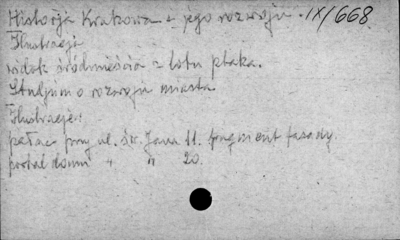 Historja Krakowa i jego rozwoju. IX/668
Ilustracje:
widok śródmieścia z lotu ptaka.
Studjum o rozwoju miasta
Ilustracje:
pałac przy ul. św. Jana 11. fragment fasady.
portal domu " " 20.